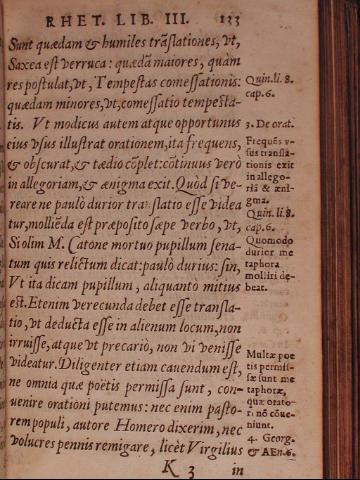 RHET. LIB. III. 133
Sunt quædam & humiles trãslationes, vt,
Saxea est verruca: quædã maiores, quàm
res postulat, vt, Tempestas comessationis:
quædam minores, vt, comessatio tempesta-
tis. Vt modicus autem atque opportunus
eius vsus illustrat orationem, ita frequens,
& obscurat, & tædio cõplet: cõtinuus verò
in allegoriam, & ænigma exit. Quòd si ve-
reare ne paulò durior translatio esse videa
tur, molliẽda est præposito sæpe verbo, vt,
Si olim M. Catone mortuo pupillum sena-
tum quis relictum dicat: paulò durius: sin,
Vt ita dicam pupillum, aliquantò mitius
est. Etenim verecunda debet esse transla-
tio, vt deducta esse in alienum locum, non
irruisse, atque vt precariò, non vi venisse
videatur. Diligenter etiam cauendum est,
ne omnia quæ poëtis permissa sunt, con-
uenire orationi putemus: nec enim pasto-
rem populi, autore Homero dixerim, nec
volucres pennis remigare, licèt Virgilius
K 3 in
Quin. li. 8.
cap. 6.
3. De orat.
Frequẽs v-
sus transla-
tionis exit
in allego-
riã & æni-
gma.
Quin. li. 8.
cap. 6.
Quomodo
durior me
taphora
molliri de-
beat.
Multæ poe
tis permis-
sæ sunt me
taphoræ,
quæ orato-
ri nõ cõue-
niunt.
4. Georg.
& AEn. 6.